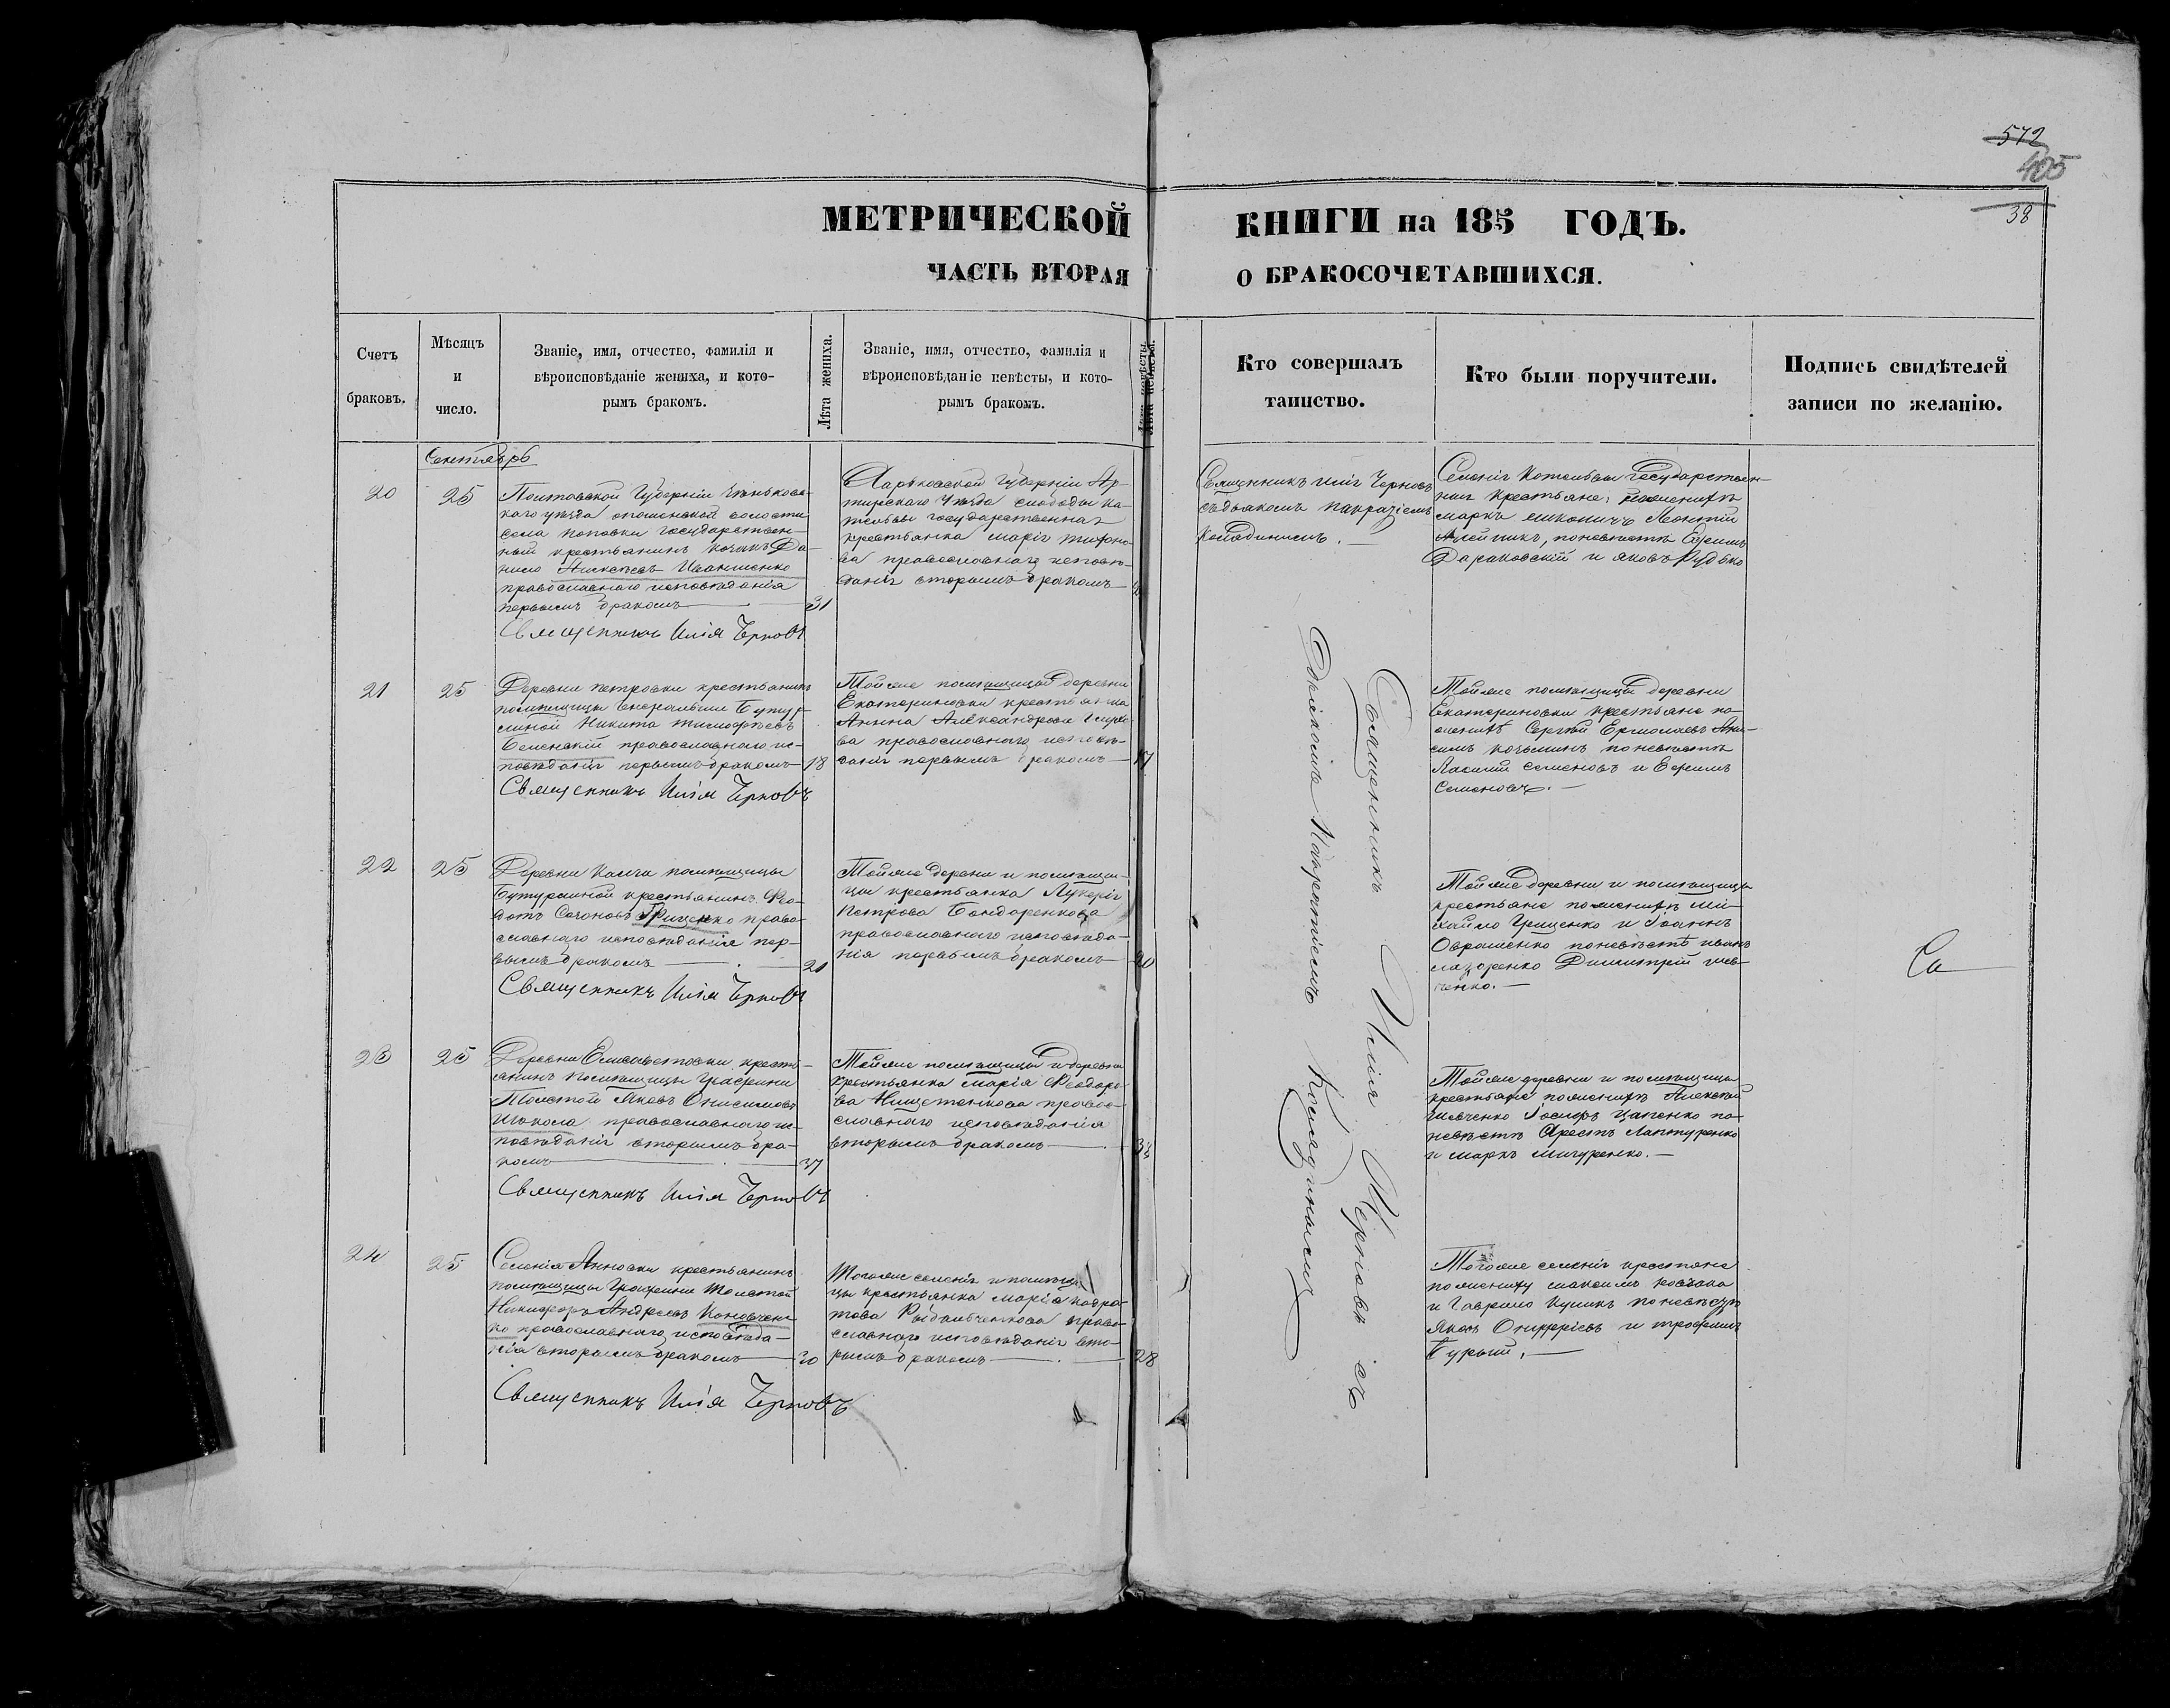 572
405
38
МЕТРИЧЕСКОЙ КНИГИ на 185 ГОДЪ.
ЧАСТЬ ВТОРАЯ О БРАКОСОЧЕТАВШИХСЯ.
Счетъ браковъ.
Мѣсяцъ и число.
Званіе, имя, отчество, фамилія и
вѣроисповѣданіе жениха, и кото-
рымъ бракомъ.
Лѣта жениха.
Званіе, имя, отчество, фамилія и
вѣроисповѣданіе невѣсты, и кото-
рымъ бракомъ.
Лѣта невѣсты.
Кто совершалъ
таинство.
Кто были поручители.
Подпись свидѣтелей
записи по желанію.
Сентябрь
20
25
Полтавской Губерніи Зѣньковс-
каго уѣзда опошенской волости
села поповки государствен-
ный крестьянинъ Да-
нило Алексѣевъ Иванненко
православнаго исповѣданія
первымъ бракомъ
31
Священникъ Илія Черновъ
Харьковской Губерніи Ах-
тырскаго Уѣзда слободы Ко-
тельвы государственная
крестьянка марія
православнаго исповѣ-
данія вторымъ бракомъ
Священникъ Илія Черновъ
съ дьякомъ панкратіемъ
Колядинымъ.
Селенія Котельвы Государствен-
ные крестьяне: по женихѣ
маркъ Леонтій
Олейникъ, по невѣстѣ Ефимъ
и яковъ Рудько
21
25
Деревни петровки крестьянинъ
помѣщицы Генеральши Бутур-
линой Никита тимофѣевъ
Беленскій православнаго ис-
повѣданія первымъ бракомъ
18
Священникъ Илія Черновъ
Той же помѣщицы деревни
Екатериновки крестьянка
Анна Александрова
православнаго исповѣ-
данія первымъ бракомъ
17
Той же помѣщицы деревни
Екатериновки крестьяне по
женихѣ Сергѣй Ермолаевъ
козьминъ по невѣстѣ
семеновъ и Ефимъ
Семеновъ.
22
25
Деревни помѣщицы
Бутурлиной крестьянинъ Фео-
дотъ Грищенко право-
славнаго исповѣданія пер-
вымъ бракомъ
21
Священникъ Илія Черновъ
Той же деревни и помѣщи-
цы крестьянка Лукерія
Петрова Бондаренкова
православнаго исповѣда-
нія первымъ бракомъ
20
Той же деревни и помѣщицы
крестьяне по женихѣ ми-
хайло Грищенко и Іоаннъ
по невѣстѣ иванъ
Димитрій шев-
ченко.
23
25
Деревни Елисаветовки кресть-
янинъ помѣщицы Графини
Толстой Яковъ Онисимовъ
православнаго ис-
повѣданія вторымъ бра-
комъ
37
Священникъ Илія Черновъ
Той же помѣщицы и деревни
крестьянка марія Феодоро-
ва православнаго исповѣданія
вторымъ бракомъ
Той же деревни и помѣщицы
крестьяне по женихѣ Алексѣй
шевченко Іосифъ цапенко по
невѣстѣ Лаптуренко
и маркъ мигуренко.
24
25
Селенія Анновки крестьянинъ
помѣщицы Графини Толстой
Никифоръ Андреевъ Коновчен-
ко православнаго исповѣда-
нія вторымъ бракомъ
30
Священникъ Илія Черновъ
Того же селенія и помѣщи-
цы крестьянка марія кодра-
това православнаго исповѣданія вто-
рымъ бракомъ
28
Того же селенія крестьяне
по жениху максимъ
и Гаврило Куликъ по невѣстѣ
Яковъ Онуфріевъ и трофимъ
Бурый.
Священникъ Илія Черновъ съ
дьякомъ Панкратіемъ Колядинымъ